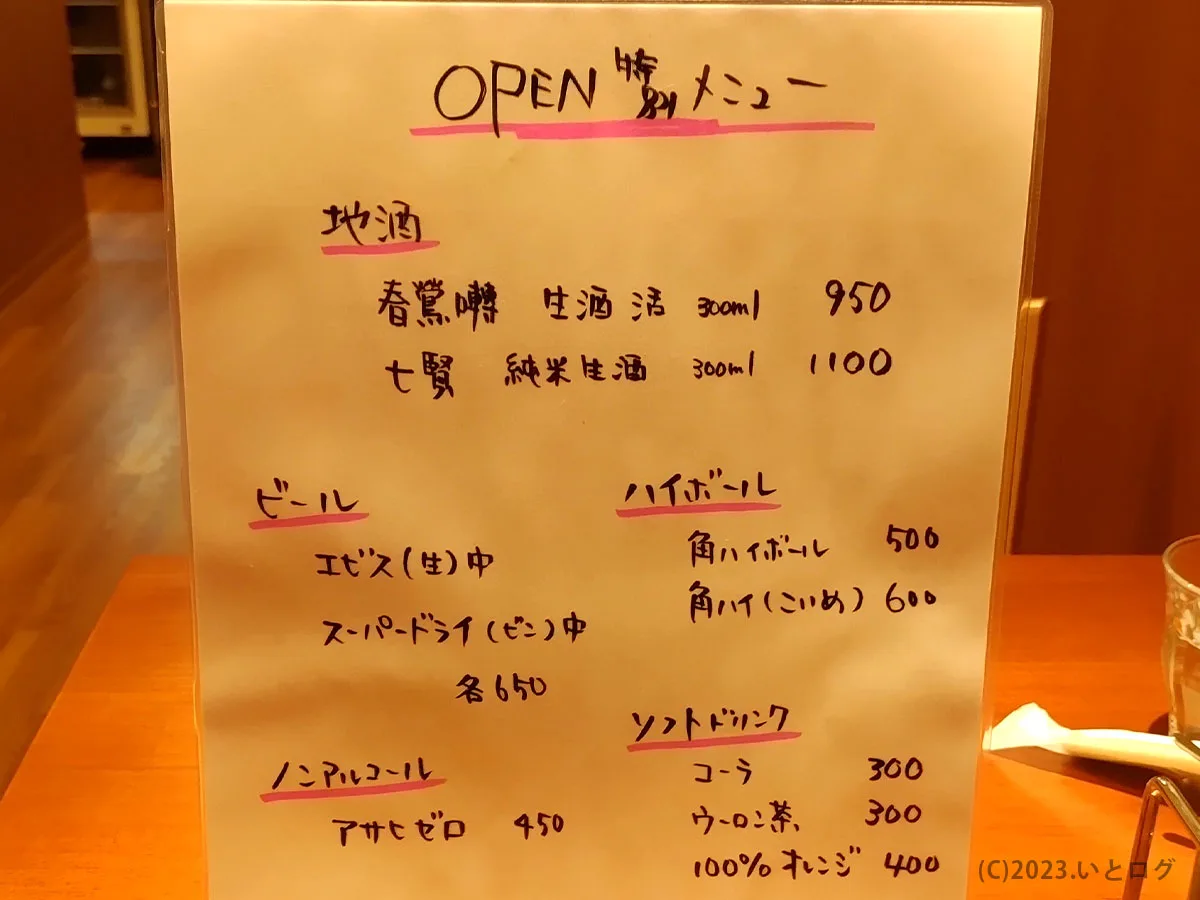 OPEN 特別 メニュー
地酒
春鶯囀 生酒 活 300ml 950
七賢 純米生酒 300ml 1100
ビール
エビス(生)中
スーパードライ(ビン)中
各650
ハイボール
角ハイボール 500
角ハイ(こいめ) 600
ノンアルコール
アサヒゼロ 450
ソフトドリンク
コーラ 300
ウーロン茶 300
100%オレンジ 400
(C)2023.いとログ